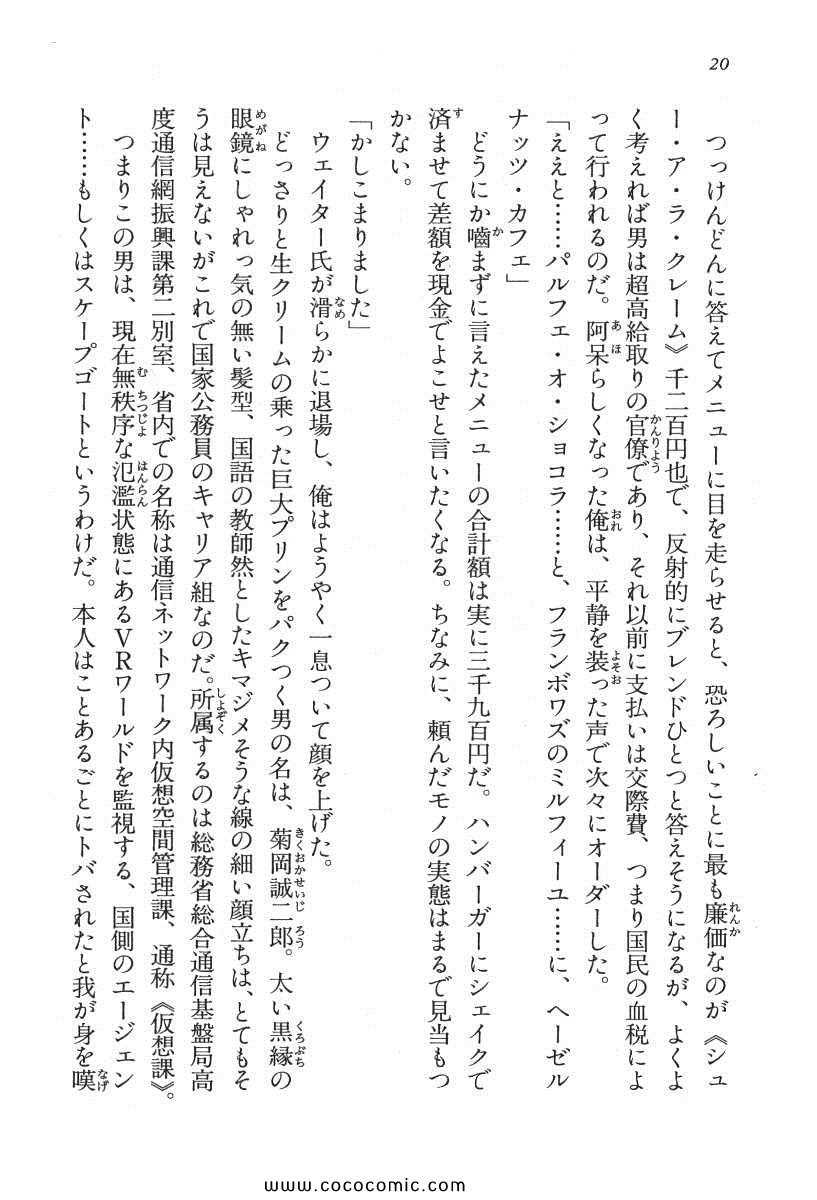 20
つっけんどんに答えてメニューに目を走らせると、恐ろしいことに最も廉価なのが《シュ
ー・ア・ラ・クレーム》千二百円也で、反射的にブレンドひとつと答えそうになるが、よくよ
く考えれば男は超高給取りの官僚であり、それ以前に支払いは交際費、つまり国民の血税によ
って行われるのだ。阿呆らしくなった俺は、平静を装った声で次々にオーダーした。
「ええと……パルフェ・オ・ショコラ……と、フランボワズのミルフィーユ……に、ヘーゼル
ナッツ・カフェ」
どうにか嚙まずに言えたメニューの合計額は実に三千九百円だ。ハンバーガーにシェイクで
済ませて差額を現金でよこせと言いたくなる。ちなみに、頼んだモノの実態はまるで見当もつ
かない。
「かしこまりました」
ウェイター氏が滑らかに退場し、俺はようやく一息ついて顔を上げた。
どっさりと生クリームの乗った巨大プリンをパクつく男の名は、菊岡誠二郎。太い黒縁の
眼鏡にしゃれっ気の無い髪型、国語の教師然としたキマジメそうな線の細い顔立ちは、とてもそ
うは見えないがこれで国家公務員のキャリア組なのだ。所属するのは総務省総合通信基盤局高
度通信網振興課第二別室、省内での名称は通信ネットワーク内仮想空間管理課、通称《仮想課》。
つまりこの男は、現在無秩序な氾濫状態にあるＶＲワールドを監視する、国側のエージェン
ト……もしくはスケープゴートというわけだ。本人はことあるごとにトバされたと我が身を嘆
www.cococomic.com